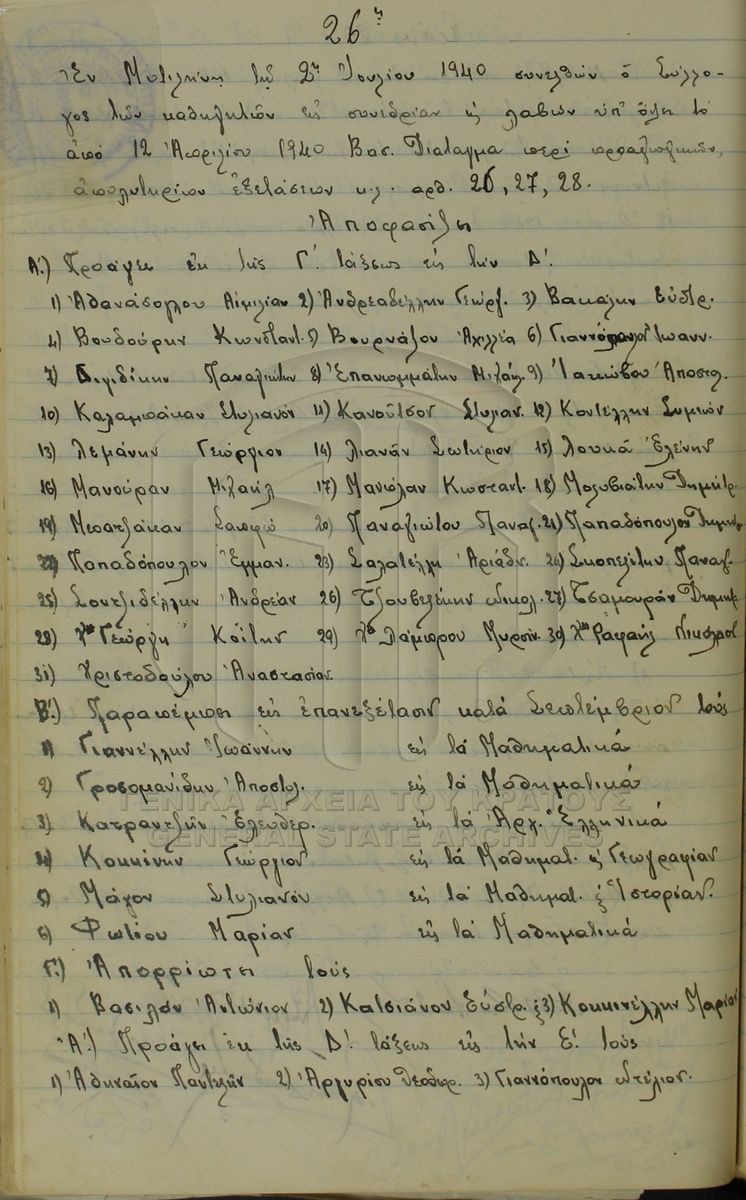 26η
Ἐν Μυτιλήνῃ τῇ 2ᾳ Ἰουλίου 1940 συνελθὼν ὁ Σύλλο-
γος τῶν καθηγητῶν εἰς συνεδρίαν κ λαβὼν ὑπ' ὄψει τὸ
ἀπὸ 12 Ἀπριλίου 1940 Βασ. Διάταγμα περὶ προαγωγικῶν,
ἀπολυτηρίων ἐξετάσεων κ.λ. ἀρθ. 26, 27, 28.
Ἀποφασίζει
Α΄.) Προάγει ἐκ τῆς Γ΄. τάξεως εἰς τὴν Δ΄.
1) Ἀθανάσογλου Αἰμιλίαν 2) Ἀνδρεαδέλλην Γεώργ. 3) Βακάλην Εὐστρ.
4) Βουδούρην Κωνσταντ. 5) Βουρνάζον Ἀχιλλέα 6) Γιαννόπουλον Ἰωανν.
7) Διγιδίκην Παναγιώτην 8) Ἐπανωμμάτην Μιχάηλ. 9) Ἰακώβου Ἀποστολ.
10) Καλαμπάκαν Στυλιανὸν 11) Κανοῦτσον Στυλιαν. 12) Κοντέλλην Συμεὼν
13) Λεμάνην Γεώργιον 14) Λιανᾶν Σωτήριον 15) Λουκᾶ Ἑλένην
16) Μανούραν Μιχαὴλ 17) Μανώλαν Κωσταντ. 18) Μολυβιάτην Δημήτρ.
19) Μπατζάκαν Σαπφὼ 20) Παναγιώτου Παναγ. 21) Παπαδόπουλον Δημήτρ
22) Παπαδόπουλον Ἐμμαν. 23) Σαλατέλλη Ἀριάδν. 24) Σκοπελίτην Παναγ.
25) Σουτζιδέλλην Ἀνδρέαν 26) Τζουβελέκην Νικολ. 27) Τσαμουρᾶν Δημητρ
28) Χ΄΄Γεώργη Κοΐτην 29) Χ΄΄Λάμπρου Μυρσίν. 30) Χ΄΄Ραφαὴλ Νικόλαον
31) Χριστοδούλου Ἀναστασίαν.
Β΄.) Παραπέμπει εἰς ἐπανεξέτασιν κατὰ Σεπτέμβριον τοὺς
1) Γιαννέλλην Ἰωάννην εἰς τὰ Μαθηματικά
2) Γροσομανίδην Ἀποστολ. εἰς τὰ Μαθηματικά
3) Κατραντζῆν Ἐλευθερ. εἰς τὰ Ἀρχ. Ἑλληνικά
4) Κοκκίνην Γεώργιον εἰς τὰ Μαθηματ. κ Γεωγραφίαν
5) Μάγον Στυλιανόν εἰς τὰ Μαθηματ. κ Ἱστορίαν.
6) Φωτίου Μαρίαν εἰς τὰ Μαθηματικά
Γ΄.) Ἀπορρίπτει τοὺς
1) Βασιλὸν Ἀντώνιον 2) Κατσιάνον Εὐστρ. κ 3) Κοκκινέλλην Μαρίαν
Α΄.) Προάγει ἐκ τῆς Δ΄. τάξεως εἰς τὴν Ε΄. τοὺς
1) Ἀθηναῖον Παντελῆν 2) Ἀργυρίου Θεόδωρ. 3) Γιαννόπουλον Στέλιον.
ΓΕΝΙΚΑ ΑΡΧΕΙΑ ΤΟΥ ΚΡΑΤΟΥΣ
GENERAL STATE ARCHIVES